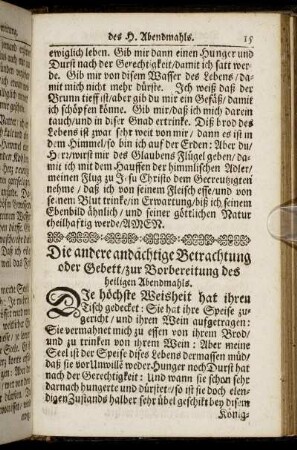 des H. Abendmahls. 15
ewiglich leben. Gib mir dann einen Hunger und
Durst nach der Gerechtigkeit/damit ich satt wer-
de. Gib mir von disem Wasser des Lebens/da-
mit mich nicht mehr dürste. Ich weiß daß der
Brunn tieff ist/aber gib du mir ein Gefäß/damit
ich schöpfen könne. Gib mir/daß ich mich darein
tauch/und in diser Gnad ertrincke. Diß brod des
Lebens ist zwar sehr weit von mir/ dann es ist in
dem Himmel/so bin ich auf der Erden: Aber du/
Herr/wirst mir des Glaubens Flügel geben/da-
mit ich mit dem Hauffen der himmlischen Adler/
meinen Flug zu Jesu Christo dem Gecreutzigten
nehme/ daß ich von seinem Fleisch esse/und von
seinem Blut trincke/in Erwartung/biß ich seinem
Ebenbild ähnlich/ und seiner göttlichen Natur
theilhaftig werde/AMEN.
Die andere andächtige Betrachtung
oder Gebett/zur Vorbereitung des
heiligen Abendmahls.
Die höchste Weisheit hat ihren
Tisch gedecket: Sie hat ihre Speise zu-
gericht/ und ihren Wein aufgetragen:
Sie vermahnet mich zu essen von ihrem Brod/
und zu trincken von ihrem Wein: Aber meine
Seel ist der Speise dises Lebens dermassen müd/
daß sie vor Unwillē weder Hunger noch Durst hat
nach der Gerechtigkeit: Und wann sie schon sehr
darnach hungerte und dürstet/so ist sie doch elen-
digen Zustands halber sehr übel geschikt bey disem
König-